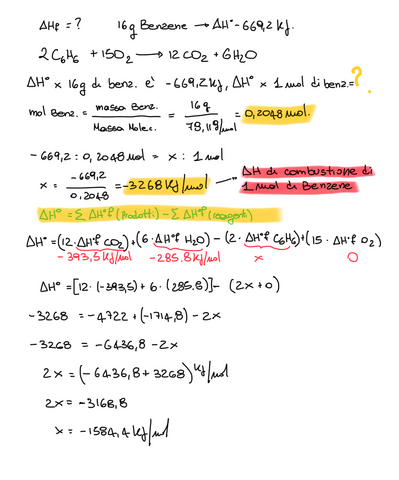 ΔHf = ? 16g Benzene → ΔH° -669,2 kJ.
2C6H6 + 15O2 → 12CO2 + 6H2O
ΔH° x 16g di benz. e' -669,2 kJ, ΔH° x 1 mol di benz.= ?
mol Benz. = massa Benz. / Massa Molec. = 16g / 78,11g/mol = 0,2048 mol.
-669,2 : 0,2048 mol = x : 1 mol
x = -669,2 / 0,2048 = -3268 kJ/mol → ΔH di combustione di 1 mol di Benzene
ΔH° = Σ ΔH°f (Prodotti) - Σ ΔH°f (reagenti)
ΔH° = (12·ΔH°f CO2) + (6·ΔH°f H2O) - (2·ΔH°f C6H6) + (15·ΔH°f O2)
-393,5 kJ/mol -285.8 kJ/mol x 0
ΔH° = [12·(-393,5) + 6·(285,8)] - (2x+0)
-3268 = -4722 + (-1714,8) - 2x
-3268 = -6436,8 - 2x
2x = (-6436,8 + 3268) kJ/mol
2x = -3168,8
x = -1584,4 kJ/mol